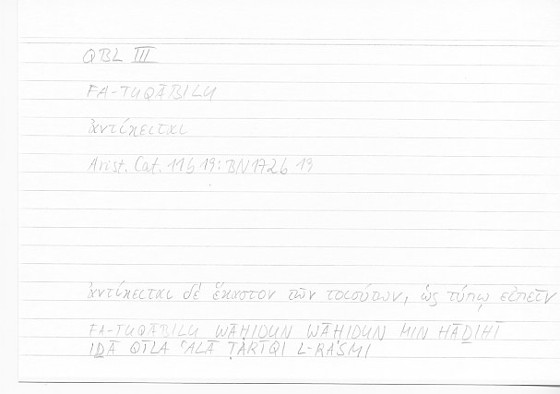 QBL III
FA-TUQĀBILU
ἀντίκειται
Arist. Cat. 11b 19: BN 172b 13
ἀντίκειται δὲ ἕκαστον τῶν τοιούτων, ὡς τύπῳ εἰπεῖν
FA-TUQĀBILU WĀḤIDUN WĀḤIDUN MIN HĀḎIHĪ
IḎĀ QĪLA ʿALĀ ṬARĪQI L-RASMI